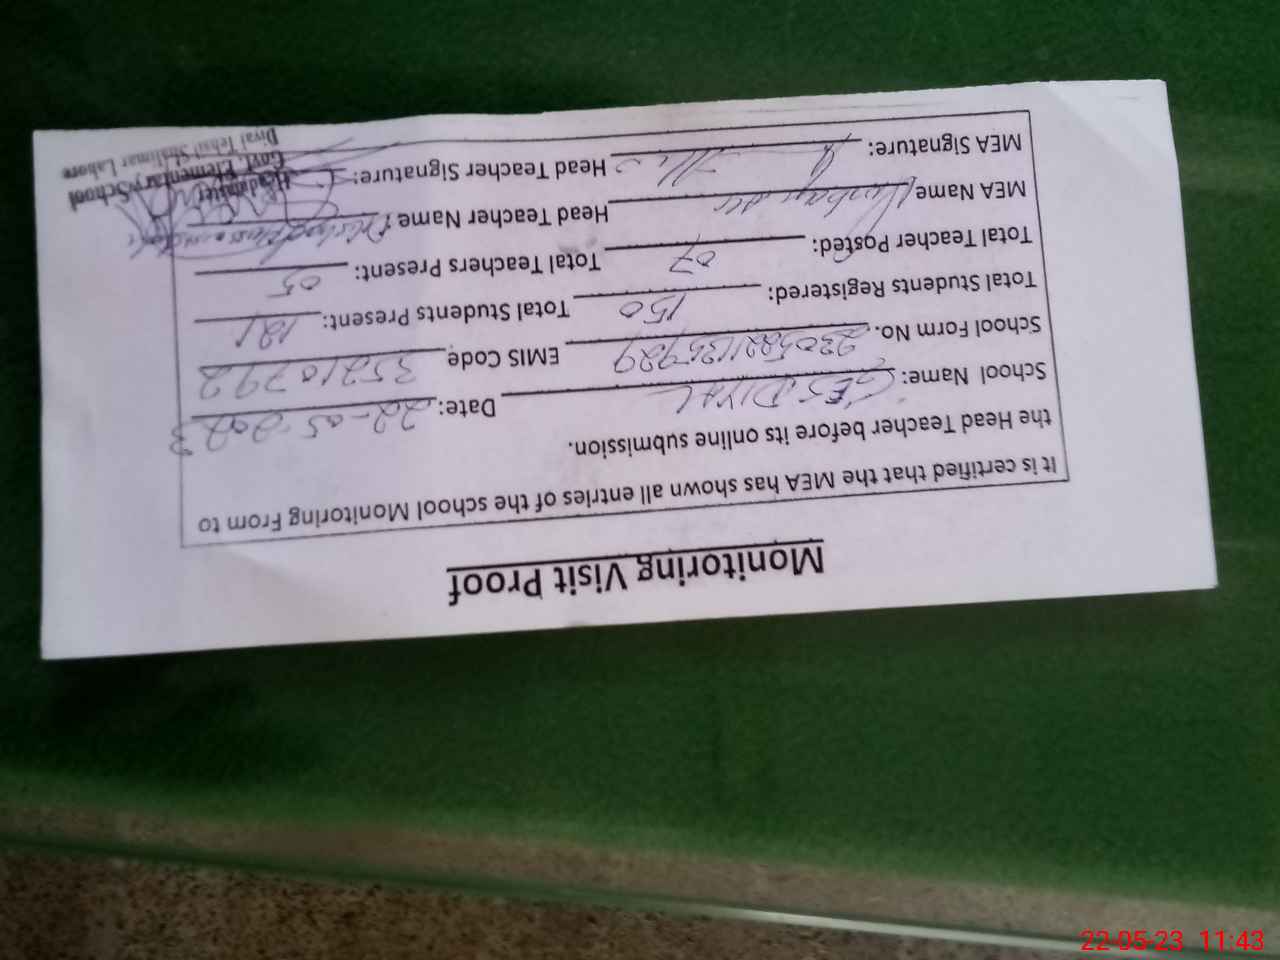 Monitoring Visit Proof
It is certified that the MEA has shown all entries of the school Monitoring From to
the Head Teacher before its online submission.
School Name: GES DIYAL Date: 22-05-2023
School Form No. EMIS Code 35210792
Total Students Registered: 150 Total Students Present: 121
Total Teacher Posted: 07 Total Teachers Present: 05
MEA Name Head Teacher Name:
MEA Signature: Head Teacher Signature:
Headmaster
Govt. Elementary School
Diyal Tehsil Shalimar Lahore
22-05-23 11:43